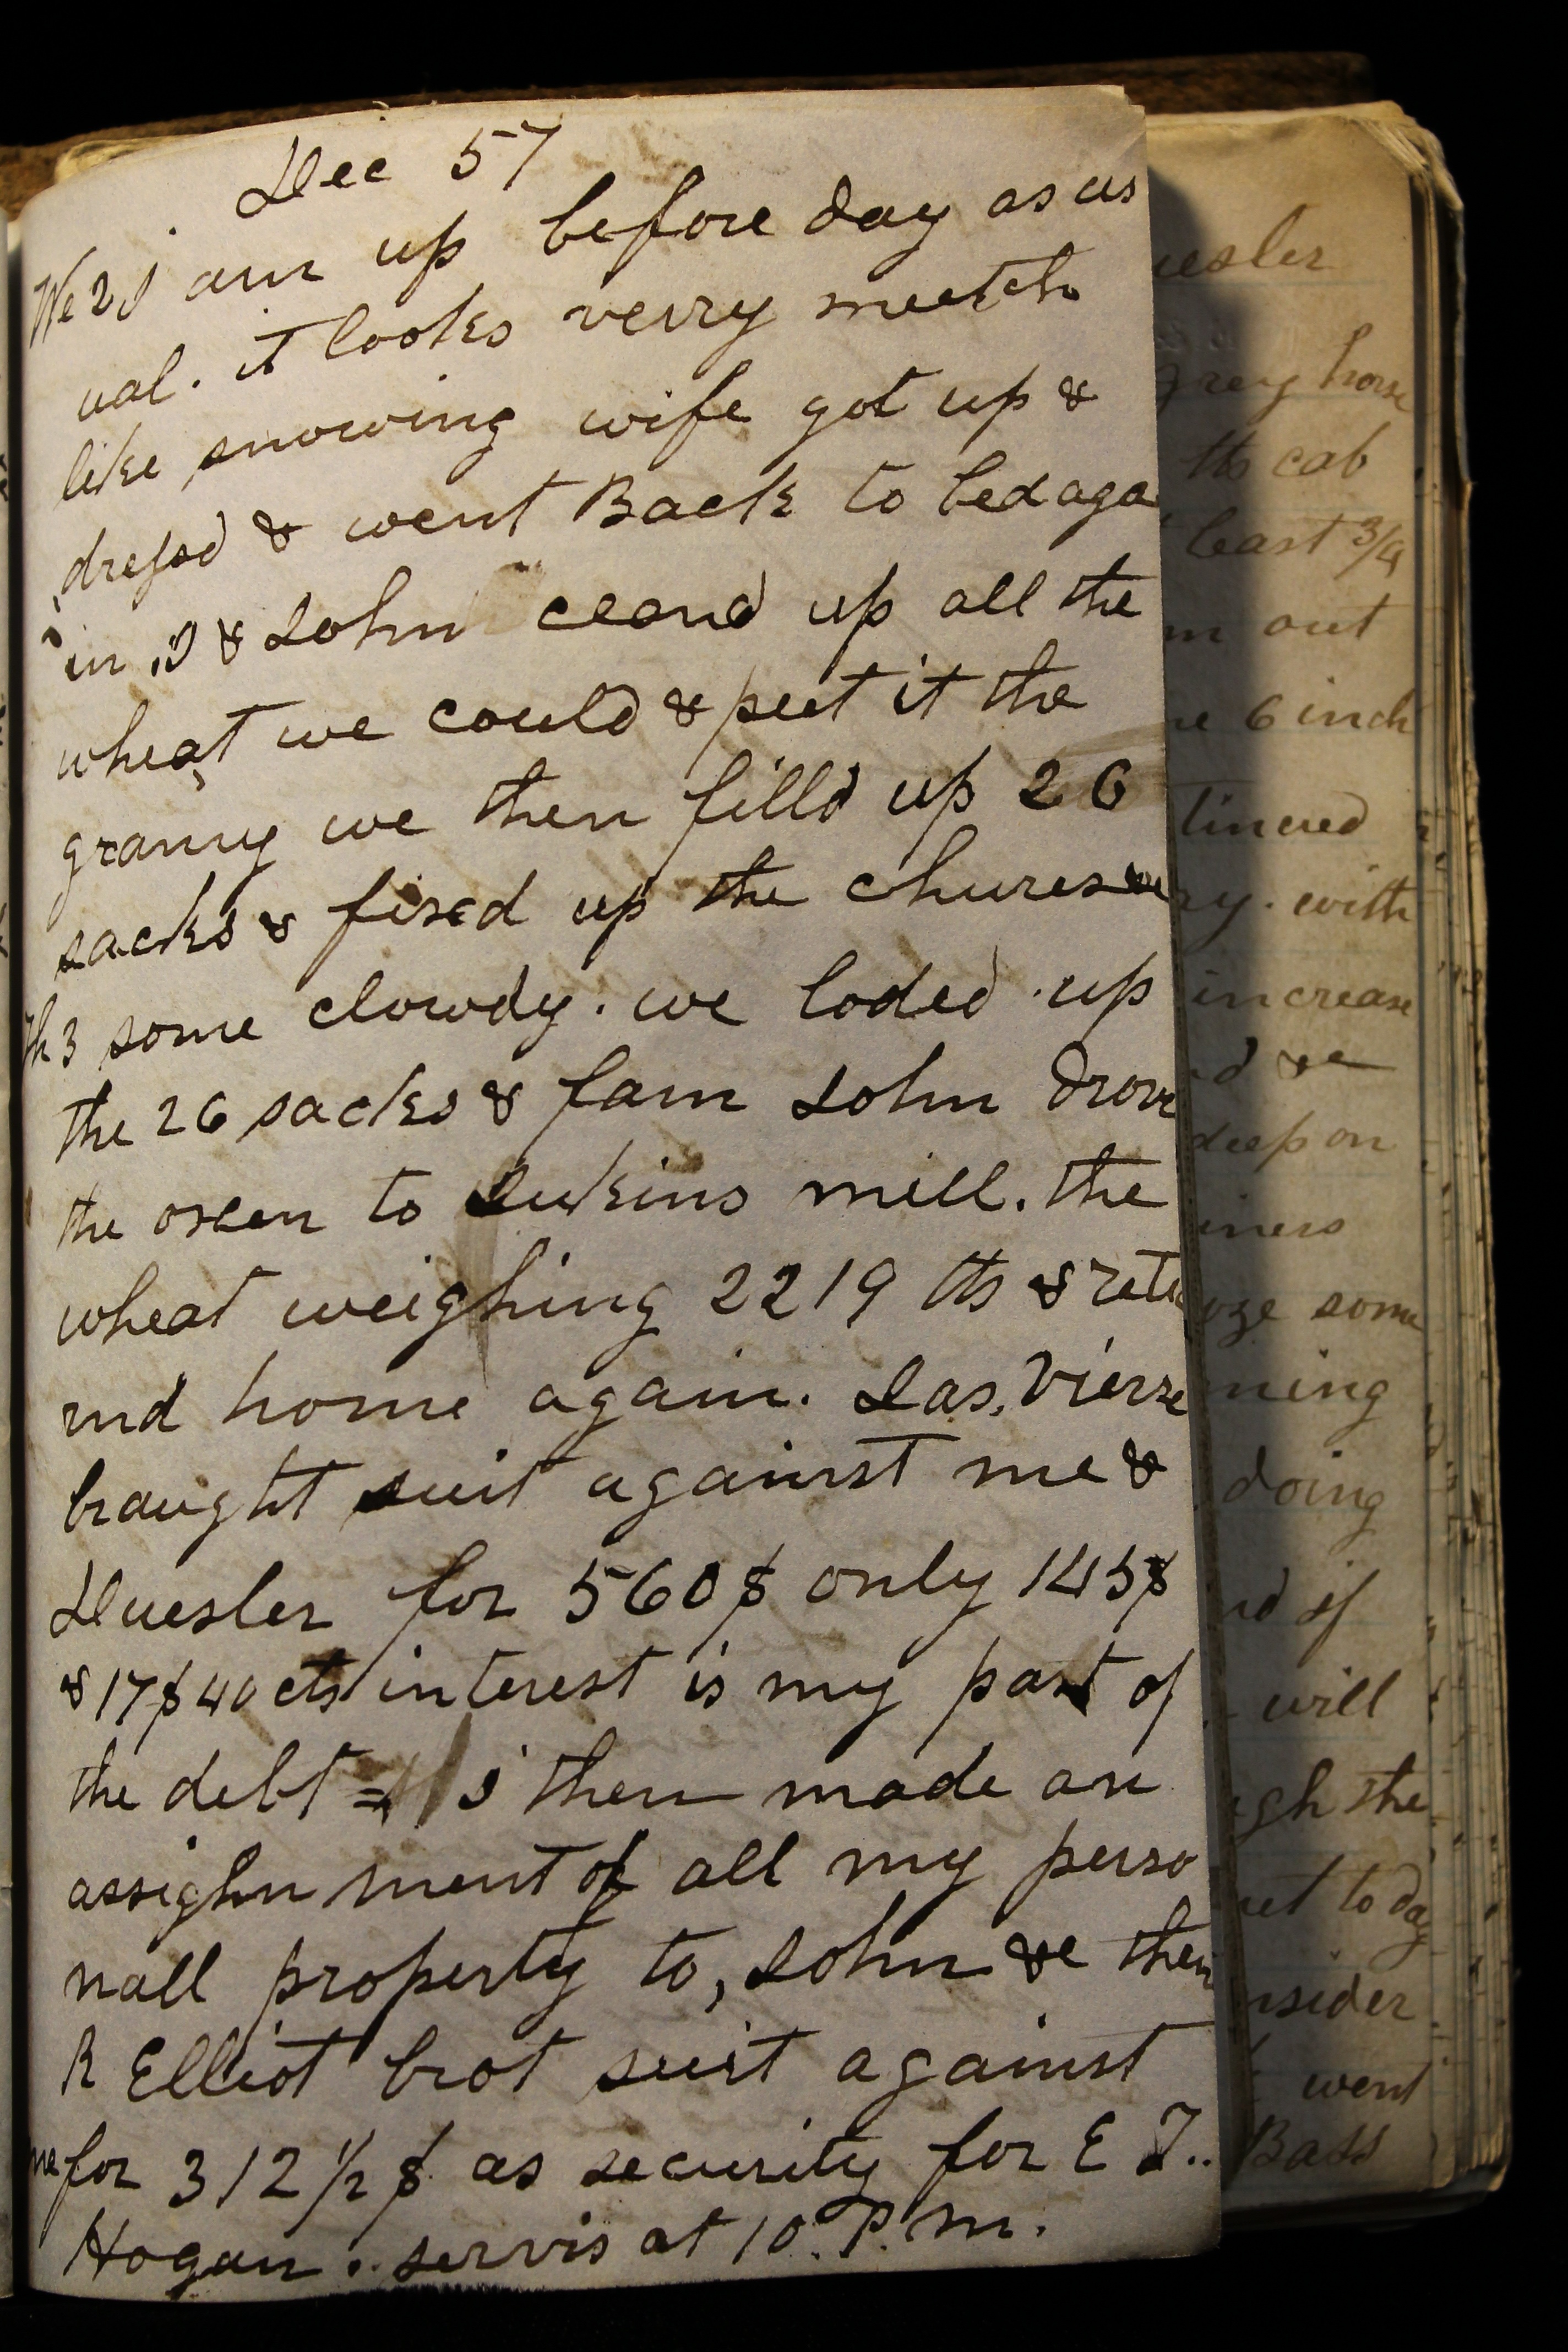 Dec 57
We 2 I am up before day as us
ual. it looks verry mutch
like snowing wife got up &
dressd & went Back to bed aga
in. I & John cleand up all the
wheat we could & put it the
granry we then filld up 26
sacks & fixed up the chures
Th 3 some clowdy. we loded up
the 26 sacks & fam John drove
the oxen to mill. the
wheat weighing 2219 lbs & retu
rnd home again. Jas. Vierse
braught suit against me &
Huesler for 560$ only 145$
& 17$ 40 cts interest is my part of
the debt = I then made an
assighn ment of all my perso
nall property to, John &c then
R Elliot brot suit against
me for 312 1/2 $ as security for E T..
Hogan. servis at 10. P. m.
uesler
grey horse
lbs cab
least 3/4
m out
re 6 inch
tinered
ry. with
increase
d &c
deep on
iners
oze some
ning
doing
nd if
will
gh the
et to day
nsider
went
Bass